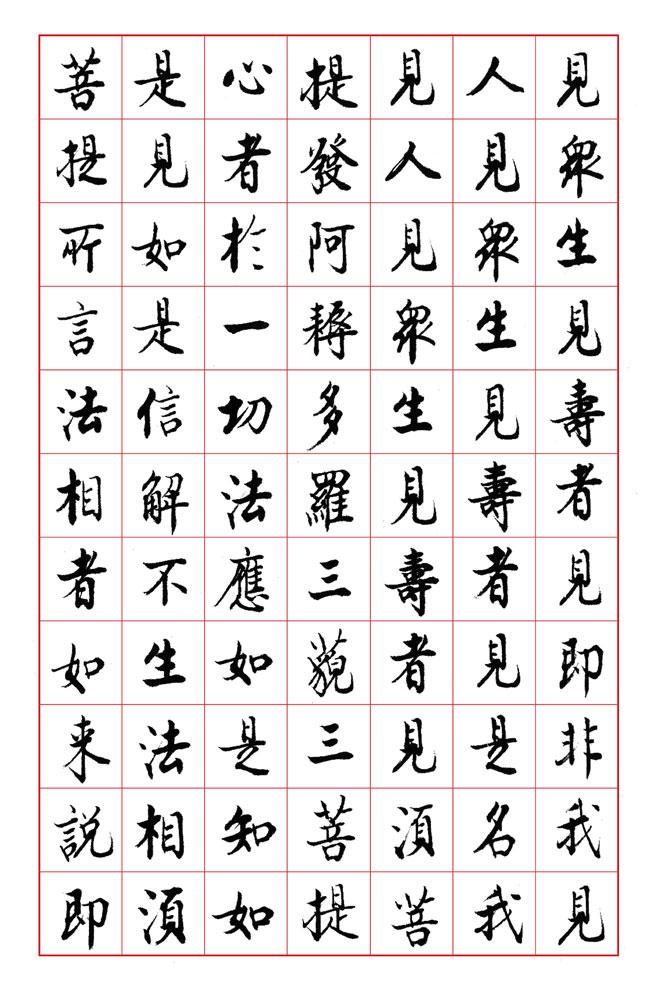 見眾生見壽者見即非我見
人見眾生見壽者見是名我
見人見眾生見壽者見須菩
提發阿耨多羅三藐三菩提
心者於一切法應如是知如
是見如是信解不生法相須
菩提所言法相者如来說即